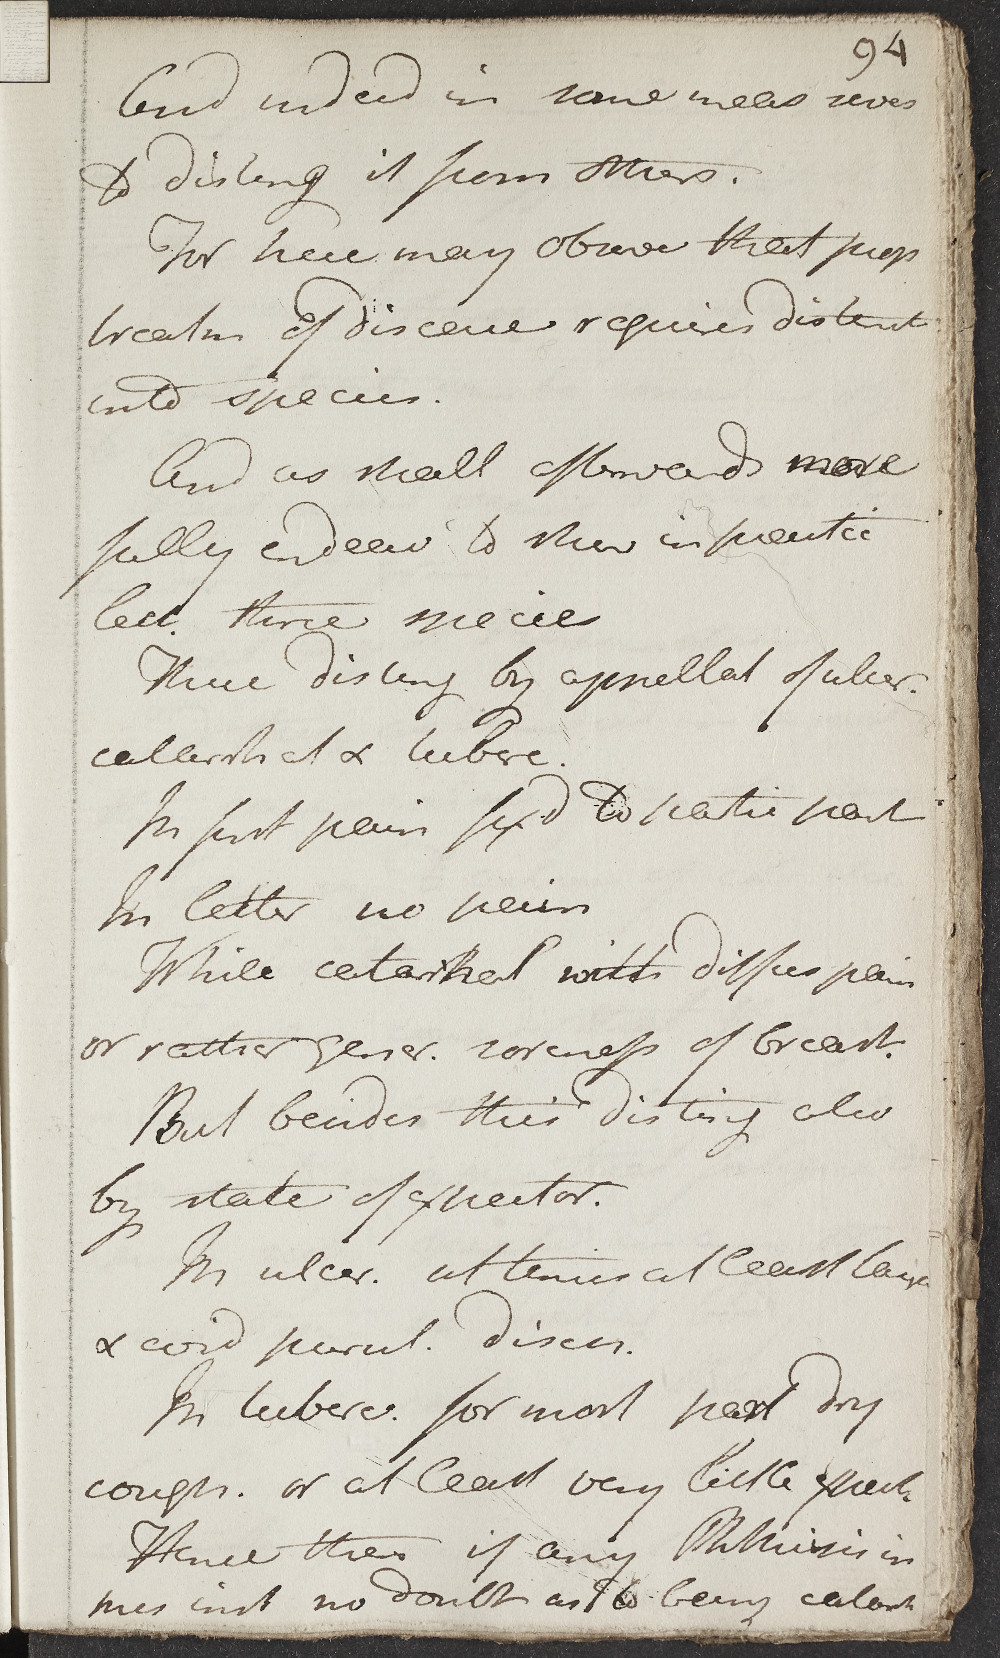 94
And indeed in some meas serves
to disting it from others.
For here may observe that prop
treatm of disease requires distinct
into species.
And as shall afterwards more
fully endeav to shew in practic
lect. three specie
These disting by appellat of ulcer.
catarrhal & tuberc.
In first pain fix'd to partic part
In latter no pain
While catarrhal with diffus pain
or rather gener. soreness of breast.
But besides this disting also
by state of expector.
In ulcer. at times at least large
& evid purul. disch.
In tuberc. for most part dry
cough. or at least very little expect.
Hence then if any Phthisis in
this inst no doubt as to being catarrh